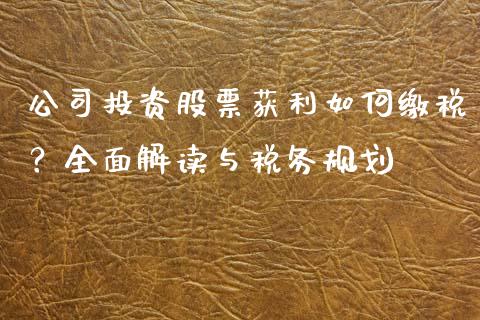 公司投资股票获利如何缴税
？全面解读与税务规划